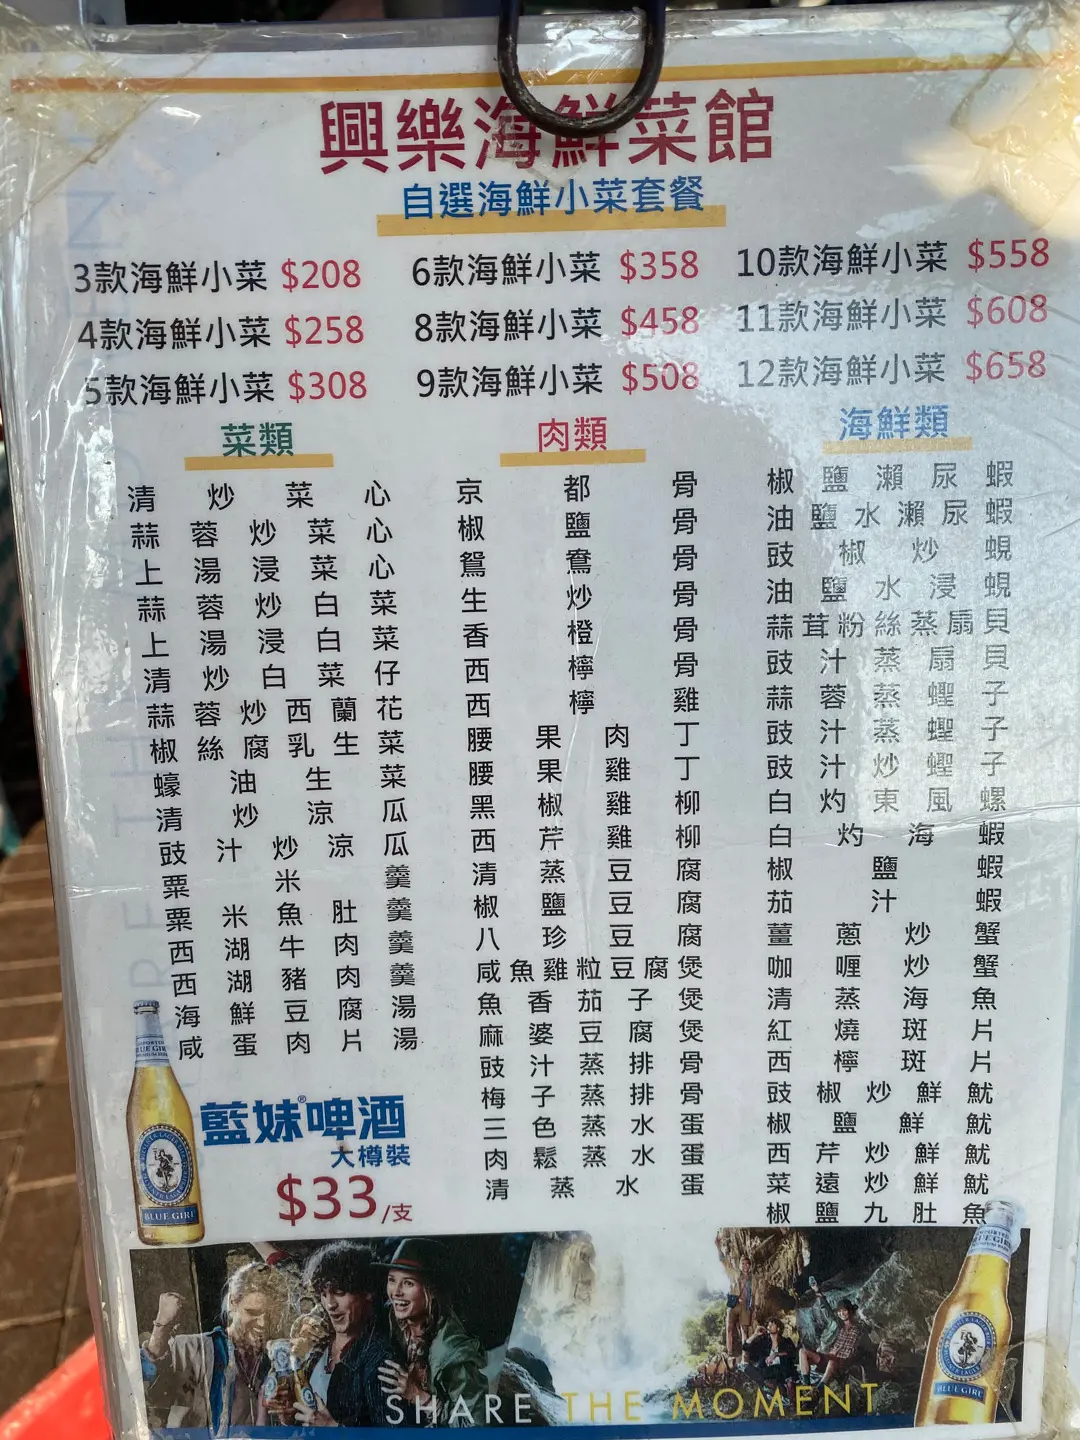 興樂海鮮菜館
自選海鮮小菜套餐
3款海鮮小菜 $208
6款海鮮小菜 $358
10款海鮮小菜 $558
4款海鮮小菜 $258
8款海鮮小菜 $458
11款海鮮小菜 $608
5款海鮮小菜 $308
9款海鮮小菜 $508
12款海鮮小菜 $658
菜類
清炒菜心
蒜蓉炒菜心
上湯浸菜心
蒜蓉炒白菜
上湯浸白菜
清炒白菜仔
蒜蓉炒西蘭花
椒絲腐乳生菜
蠔油生菜
清炒涼瓜
豉汁炒涼瓜
粟米羹
粟米魚肚羹
西湖牛肉羹
西湖豬肉羹
海鮮豆腐湯
咸蛋肉片湯
肉類
京都骨
椒鹽骨
鴛鴦骨
生炒骨
香橙骨
西檸骨
西檸雞
腰果肉丁
腰果雞丁
黑椒雞柳
西芹雞柳
清蒸豆腐
椒鹽豆腐
八珍豆腐
咸魚雞粒豆腐煲
魚香茄子煲
麻婆豆腐煲
豉汁蒸排骨
梅子蒸排骨
三色蒸水蛋
肉鬆蒸水蛋
清蒸水蛋
海鮮類
椒鹽瀨尿蝦
油鹽水瀨尿蝦
豉椒炒蜆
油鹽水浸蜆
蒜茸粉絲蒸扇貝
豉汁蒸扇貝
蒜蓉蒸蟶子
豉汁蒸蟶子
豉汁炒蟶子
白灼東風螺
白灼海蝦
椒鹽蝦
茄汁蝦
薑蔥炒蟹
咖喱炒蟹
清蒸海魚
紅燒斑片
西檸斑片
豉椒炒鮮魷
椒鹽鮮魷
西芹炒鮮魷
菜遠炒鮮魷
椒鹽九肚魚
藍妹®啤酒
大樽裝
$33/支
BLUE GIRL
BLUE GIRL
SHARE THE MOMENT